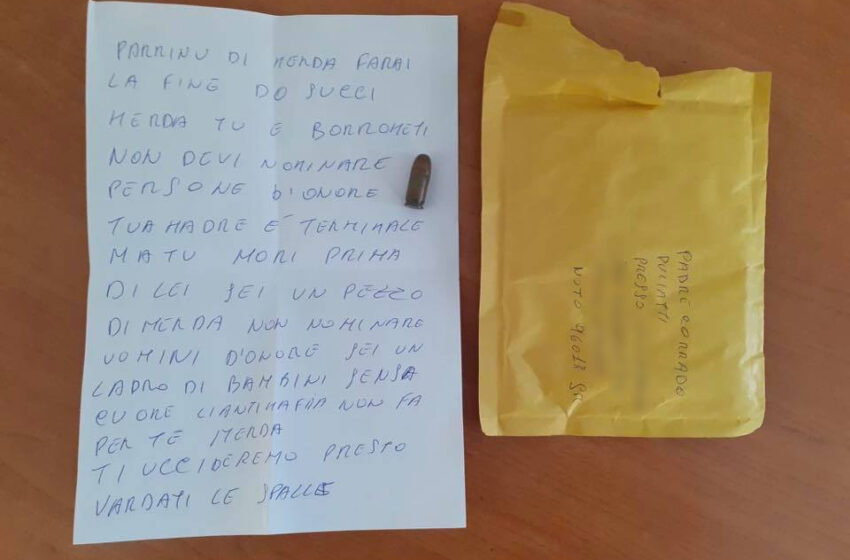 PARRINU DI MERDA FARAI
LA FINE DO SUCCI
MERDA TU E BORROMETI
NON DEVI NOMINARE
PERSONE D'ONORE
TUA MADRE E' TERMINALE
MA TU MORI PRIMA
DI LEI SEI UN PEZZO
DI MERDA NON NOMINARE
UOMINI D'ONORE SEI UN
LADRO DI BAMBINI SENSA
CUORE L'ANTIMAFIA NON FA
PER TE MERDA
TI UCCIDEREMO PRESTO
VARDATI LE SPALLE
PADRE CORRADO
PRESSO
NOTO 96017 SR